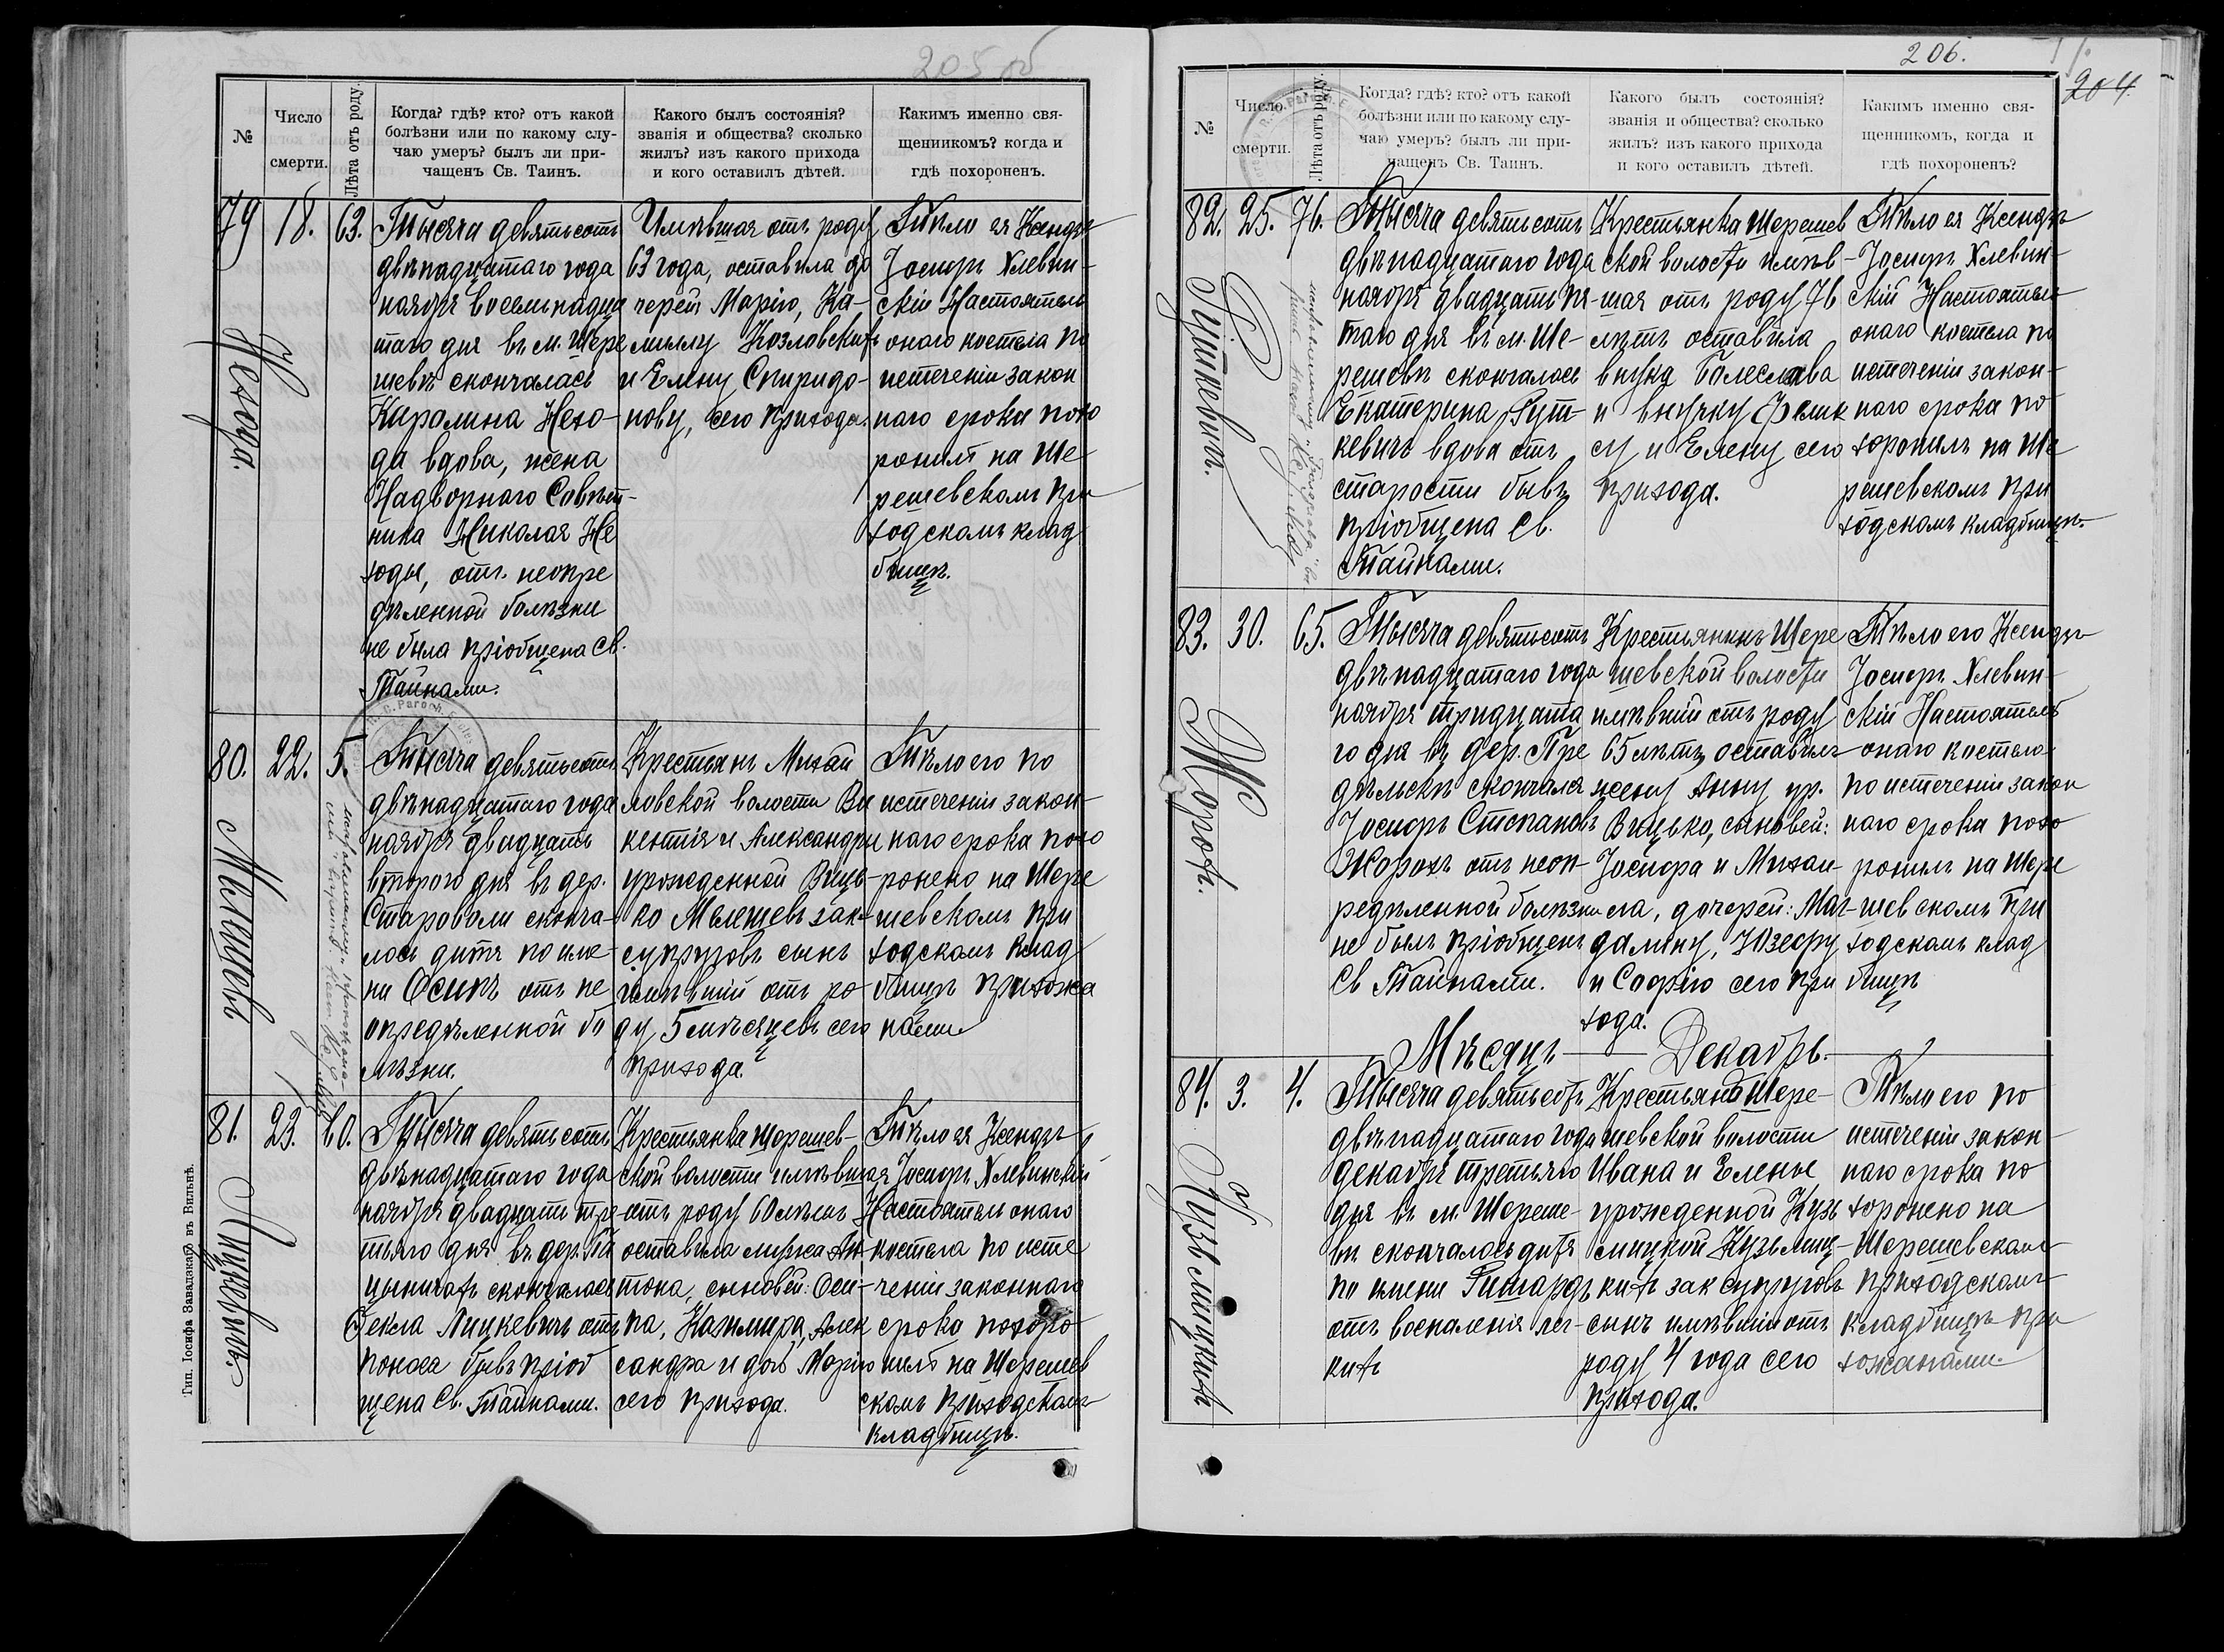 205 об
№
Число
смерти.
Лѣта отъ роду.
Когда? гдѣ? кто? отъ какой
болѣзни или по какому слу-
чаю умеръ? былъ ли при-
чащенъ Св. Таинъ.
Какого былъ состоянія?
званія и общества? сколько
жилъ? изъ какого прихода
и кого оставилъ дѣтей.
Какимъ именно свя-
щенникомъ? когда и
гдѣ похороненъ.
79
Нехода.
18.
63.
Тысяча девятьсотъ
двѣнадцатаго года
ноября восемнадца
таго дня въ м. Шере
шевѣ скончалась
Каролина Нехо-
да вдова, жена
Надворнаго Совѣт-
ника Николая Не
ходы, отъ неопре
дѣленной болѣзни
не была пріобщена Св.
Тайнами.
Имѣвшая отъ роду
63 года, оставила до
черей Марію, Ка-
миллу Козловскихъ
и Елену Спиридо-
нову, сего прихода.
Тѣло ея Ксендзъ
Іосифъ Хлевин-
скій Настоятель
онаго костела по
истеченіи закон
наго срока похо
ронилъ на Ше
решевскомъ при
ходскомъ клад
бищѣ.
80.
Малишевъ
22.
5.
Тысяча девятьсотъ
двѣнадцатаго года
ноября двадцать
второго дня въ дер.
Староволи сконча-
лось дитя по име-
ни Осипъ отъ не
опредѣленной бо
лѣзни.
Крестьянъ Михай
ловской волости Ви
кентія и Александры
урожденной Виць-
ко Малешевъ зак.
супруговъ сынъ
имѣвшій отъ ро-
ду 5 мѣсяцевъ сего
прихода.
Тѣло его по
истеченіи закон-
наго срока похо
ронено на Шере
шевскомъ при
ходскомъ клад
бищѣ прихожа
нами
81.
Лицкевичъ.
23.
60.
Тысяча девятьсотъ
двѣнадцатаго года
ноября двадцать тре
тьяго дня въ дер.
скончалась
Ѳекла Лицкевичъ отъ
поноса бывъ пріоб
щена Св. Тайнами.
Крестьянка Шерешев-
ской волости имѣвшая
отъ роду 60 лѣтъ
оставила мужа Ан-
тона, сыновей: Оси-
па, Казимира, Алек
сандра и дочь Марію
сего прихода.
Тѣло ея Ксендзъ
Іосифъ Хлевинскій
Настоятель онаго
костела по исте
ченіи законнаго
срока похоро-
нилъ на Шерешев
скомъ приходскомъ
кладбищѣ.
Тип. Іосифа Завадзкаго въ Вильнѣ.
206.
204.
№
Число.
смерти.
Лѣта отъ роду.
Когда? гдѣ? кто? отъ какой
болѣзни или по какому слу-
чаю умеръ? былъ ли при-
чащенъ Св. Таинъ.
Какого былъ состоянія?
званія и общества? сколько
жилъ? изъ какого прихода
и кого оставилъ дѣтей.
Какимъ именно свя-
щенникомъ, когда и
гдѣ похороненъ?
82.
25.
76.
Тысяча девятьсотъ
двѣнадцатаго года
ноября двадцать пя-
таго дня въ м. Ше-
решевѣ скончалась
Екатерина Лут-
кевичъ вдова отъ
старости бывъ
пріобщена Св.
Тайнами.
Крестьянка Шерешев
ской волости имѣв-
шая отъ роду 76
лѣтъ оставила
внука Болеслава
и внучку Фелик
су и Елену сего
прихода.
Тѣло ея Ксендзъ
Іосифъ Хлевин-
скій Настоятель
онаго костела по
истеченіи закон-
наго срока по-
хоронилъ на Ше
решевскомъ при
ходскомъ кладбищѣ.
83.
Жорохъ.
30.
65.
Тысяча девятьсотъ
двѣнадцатаго года
ноября тридцата
го дня въ дер. Пре
дѣльскѣ скончался
Іосифъ Степановъ
Жорохъ отъ неоп-
редѣленной болѣзни
не былъ пріобщенъ
Св Тайнами.
Крестьянинъ Шере
шевской волости
имѣвшій отъ роду
65 лѣтъ, оставилъ
жену Анну ур.
Вицько, сыновей:
Іосифа и Михаи-
ла, дочерей: Маг-
далину, Юзефу
и Софію сего при
хода.
Тѣло его Ксендзъ
Іосифъ Хлевин-
скій Настоятель
онаго костела
по истеченіи закон
наго срока похо
ронилъ на Шере
шевскомъ при
ходскомъ клад
бищѣ
Мѣсяцъ Декабрь.
84.
Кузьмицкихъ
3.
4.
Тысяча девятьсотъ
двѣнадцатаго года
декабря третьяго
дня въ м. Шереше-
вѣ скончалось дитя
по имени Ришардъ
отъ воспаленія лег-
кихъ
Крестьянъ Шере-
шевской волости
Ивана и Елены
урожденной Кузь
мицкой Кузьмиц-
кихъ зак супруговъ
сынъ имѣвшій отъ
роду 4 года сего
прихода.
Тѣло его по
истеченіи закон-
наго срока по
хоронено на
Шерешевскомъ
приходскомъ
кладбищѣ при
хожанами.